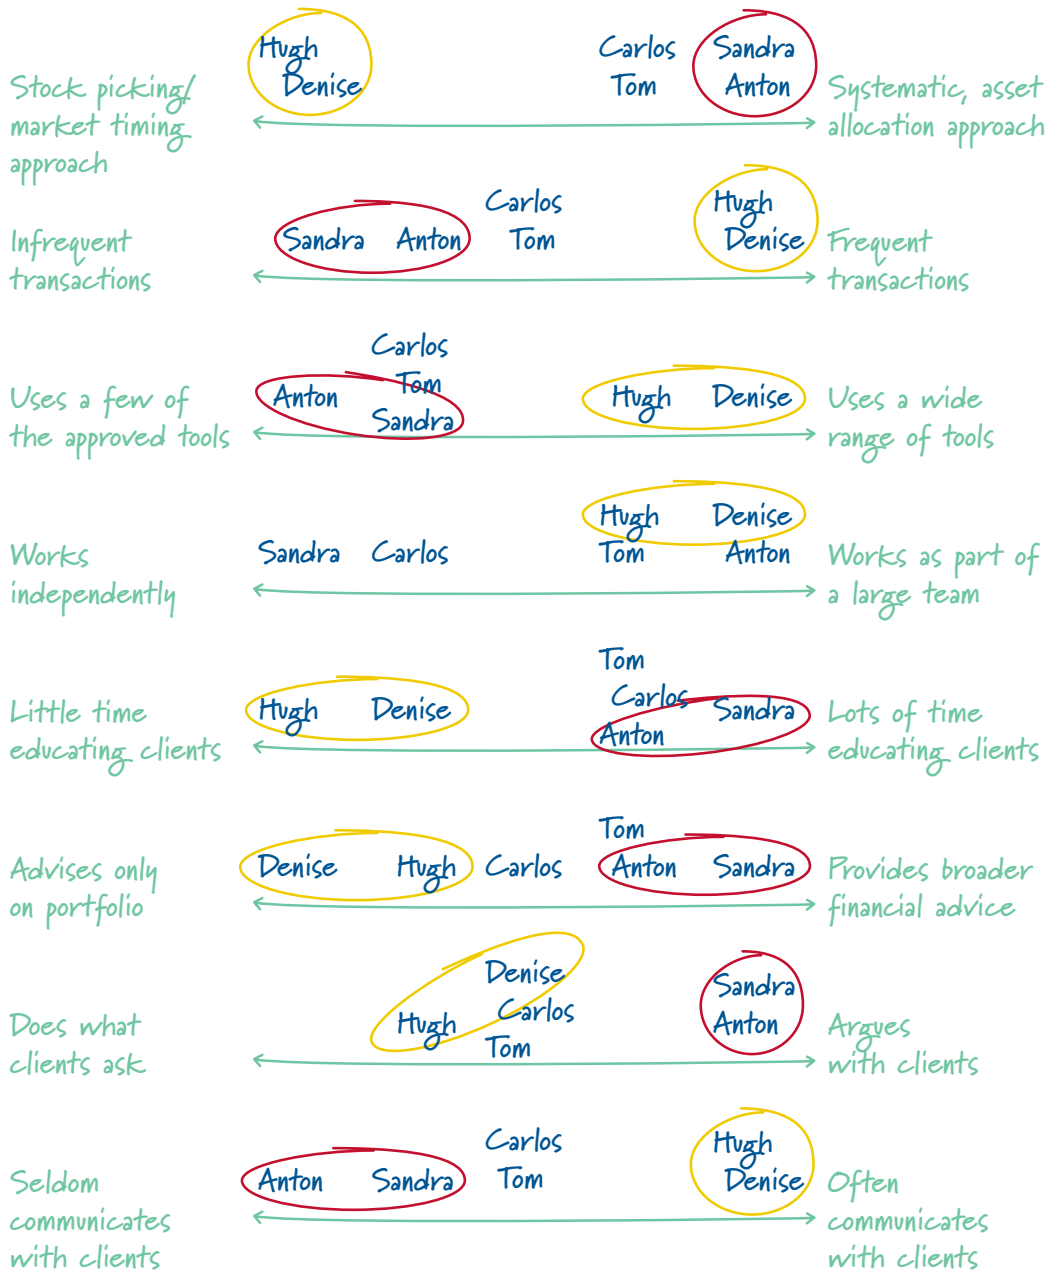 Stock picking/
market timing
approach
Hugh
Denise
Carlos
Tom
Sandra
Anton
Systematic, asset
allocation approach
Infrequent
transactions
Sandra Anton
Carlos
Tom
Hugh
Denise
Frequent
transactions
Uses a few of
the approved tools
Carlos
Tom
Anton
Sandra
Hugh Denise
Uses a wide
range of tools
Works
independently
Sandra Carlos
Hugh Denise
Tom Anton
Works as part of
a large team
Little time
educating clients
Hugh Denise
Tom
Carlos
Sandra
Anton
Lots of time
educating clients
Advises only
on portfolio
Denise Hugh Carlos
Tom
Anton Sandra
Provides broader
financial advice
Does what
clients ask
Denise
Carlos
Hugh
Tom
Sandra
Anton
Argues
with clients
Seldom
communicates
with clients
Anton Sandra
Carlos
Tom
Hugh
Denise
Often
communicates
with clients